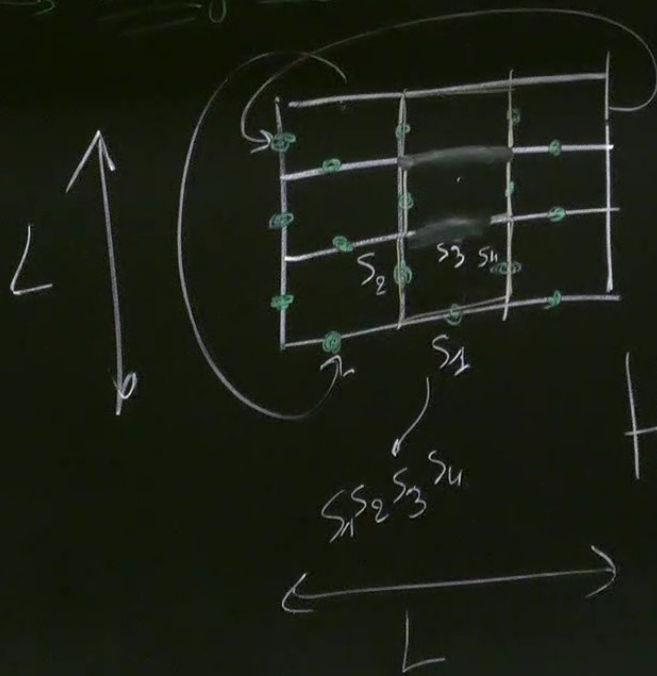 L
S₂ S₃ S₄
S₁
S₁S₂S₃S₄
L